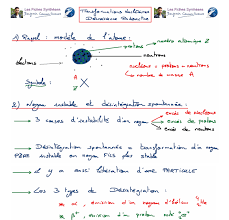 Les Fiches Synthèses
Transformations nucléaires
Les Fiches Synthèses
Décroissance Radioactive
1) Rappel : modèle de l'atome :
protons
numéro atomique Z
neutrons
électrons
nucléons = protons + neutrons
= nombre de masse A
Symbole :
A
X
Z
2) Noyau instable et désintégration spontanée :
3 causes d'instabilité d'un noyau
excès de nucléons
excès de protons
excès de neutrons
Désintégration spontanée = transformation d'un noyau
PÈRE instable en noyau FILS plus stable
il y a aussi libération d'une PARTICULE
Les 3 types de Désintégration :
α , émission d'un noyau d'hélium 4 He
β+ émission d'un positon